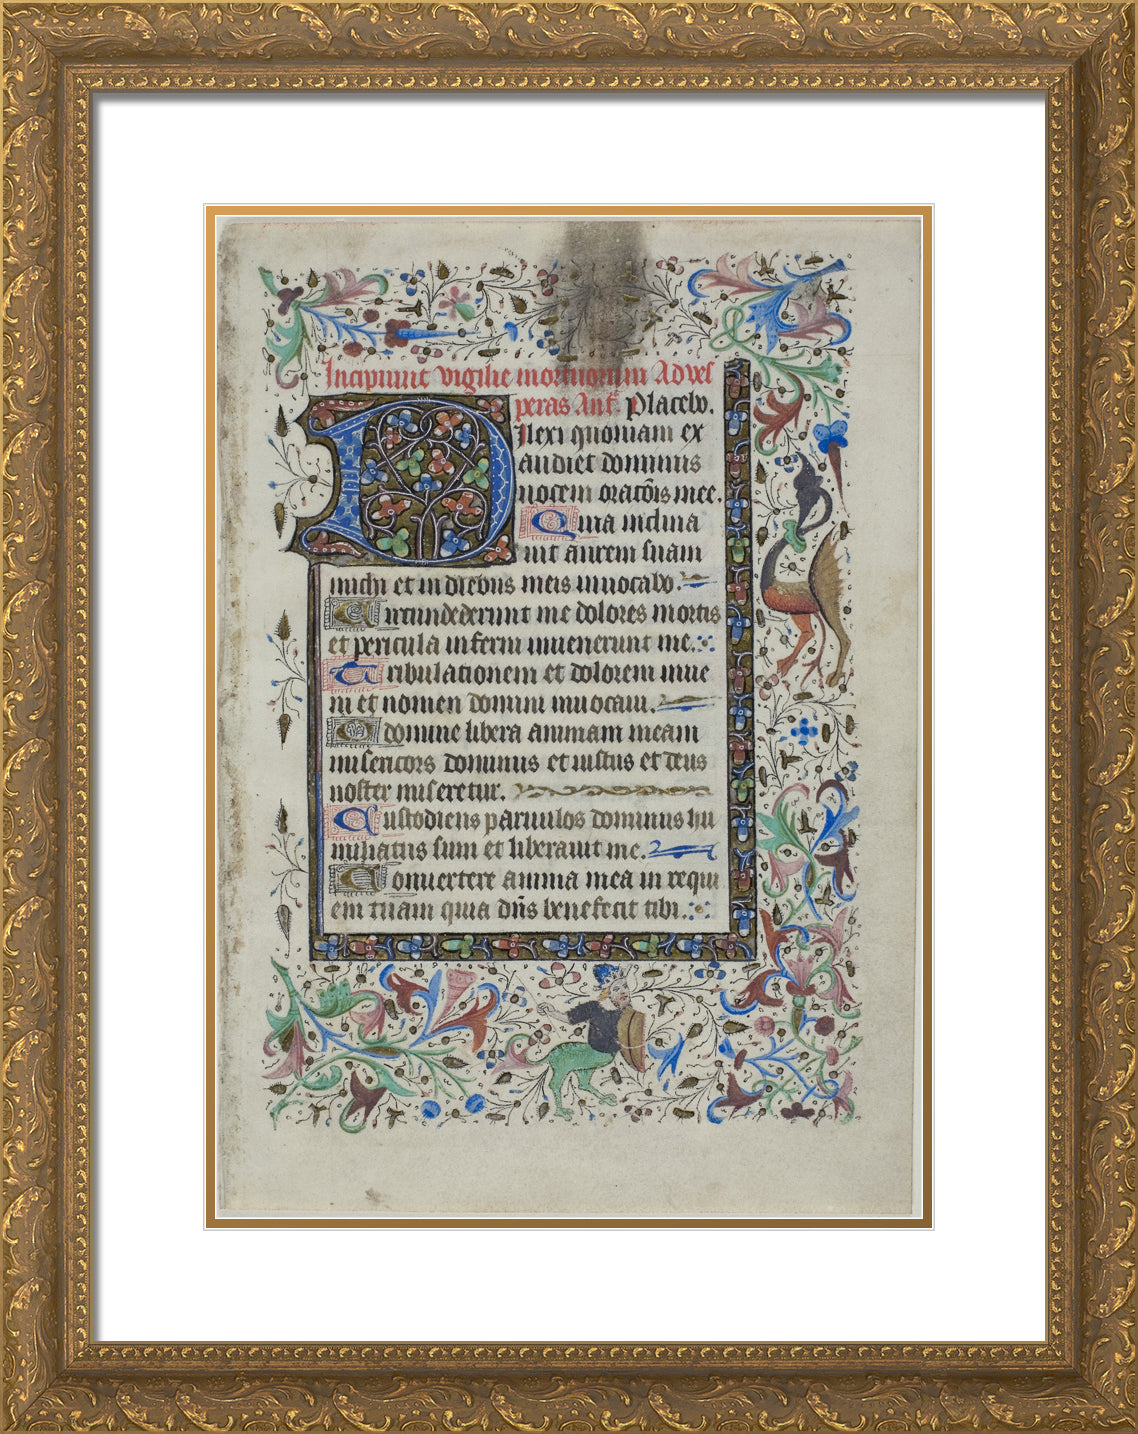 Incipiunt vigilie mortuorum Ad ves
peras Ant. Placebo.
Dilexi quoniam ex
audiet dominus
uocem oratōis mee.
Quia inclina
uit aurem suam
michi et in diebus meis inuocabo.
Circundederunt me dolores mortis
et pericula inferni inuenerunt me.
Tribulationem et dolorem inue
ni et nomen domini inuocaui.
O domine libera animam meam
misericors dominus et iustus et deus
noster miseretur.
Custodiens paruulos dominus hu
miliatus sum et liberauit me.
Conuertere anima mea in requi
em tuam quia dn̄s benefecit tibi.